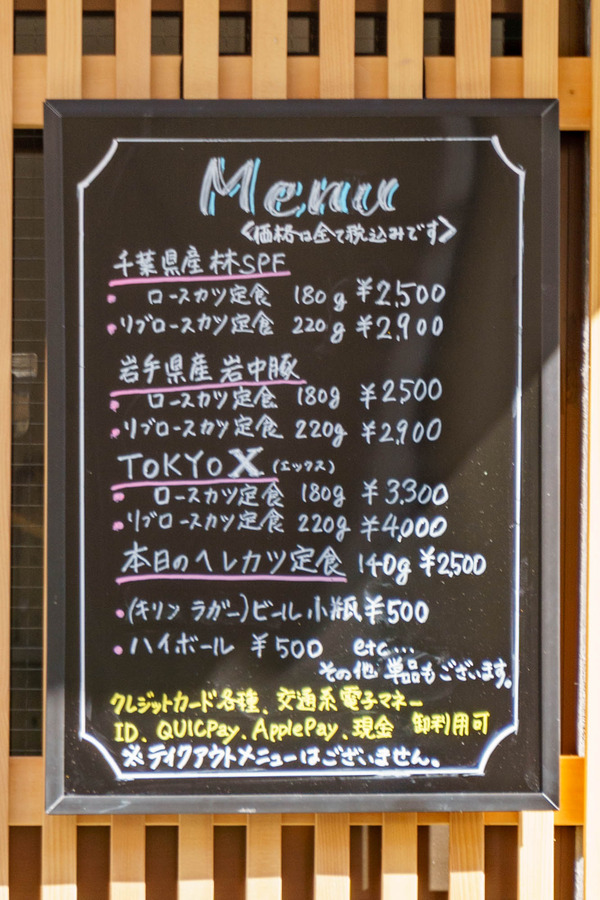 Menu
<価格は全て税込みです>
千葉県産 林SPF
• ロースカツ定食 180g ¥2,500
• リブロースカツ定食 220g ¥2,900
岩手県産 岩中豚
• ロースカツ定食 180g ¥2500
• リブロースカツ定食 220g ¥2,900
TOKYO X (エックス)
• ロースカツ定食 180g ¥3,300
• リブロースカツ定食 220g ¥4,000
本日のヘレカツ定食 140g ¥2,500
• (キリン ラガー)ビール 小瓶 ¥500
• ハイボール ¥500 etc...
その他 単品もございます。
クレジットカード各種、交通系電子マネー
ID、QUICPay、ApplePay、現金 御利用可
※テイクアウトメニューはございません。